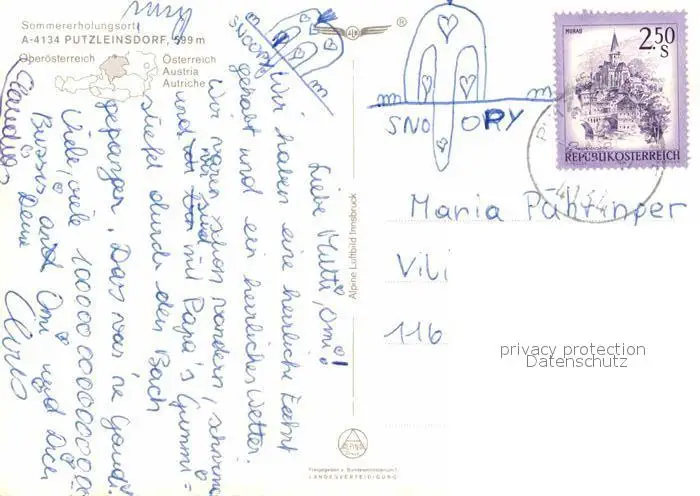 Sommererholungsort
A-4134 PUTZLEINSDORF, 599 m
Oberösterreich
Österreich
Austria
Autriche
SNOOPY
Liebe Mutti, Omi!
Wir haben eine herrliche Fahrt
gehabt und ein herrliches Wetter.
Wir waren schon wandern,
und sind mit Papa's Gummi=
stiefel durch den Bach
gegangen. Das war 'ne Gaudi.
Viele, viele 100000000000000
Bussis an Omi und Dich
Deine
Claudia
Chris
ALPINE
Alpine Luftbild Innsbruck
Freigegeben v. Bundesministerium f.
LANDESVERTEIDIGUNG
®
SNOOPY
MURAU
2.50
S
REPUBLIK ÖSTERREICH
Maria Pühringer
Vili
116
privacy protection
Datenschutz